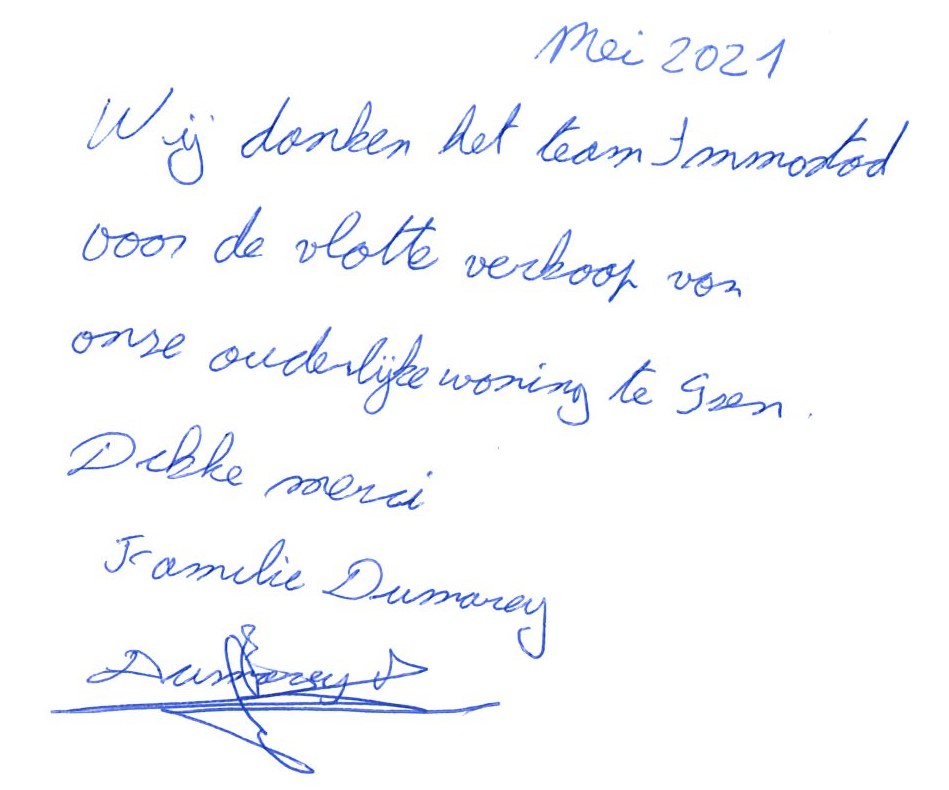 Mei 2021
Wij danken het team Immostad
voor de vlotte verkoop van
onze ouderlijke woning te
Dikke merci
Familie Dumarey
Dumarey